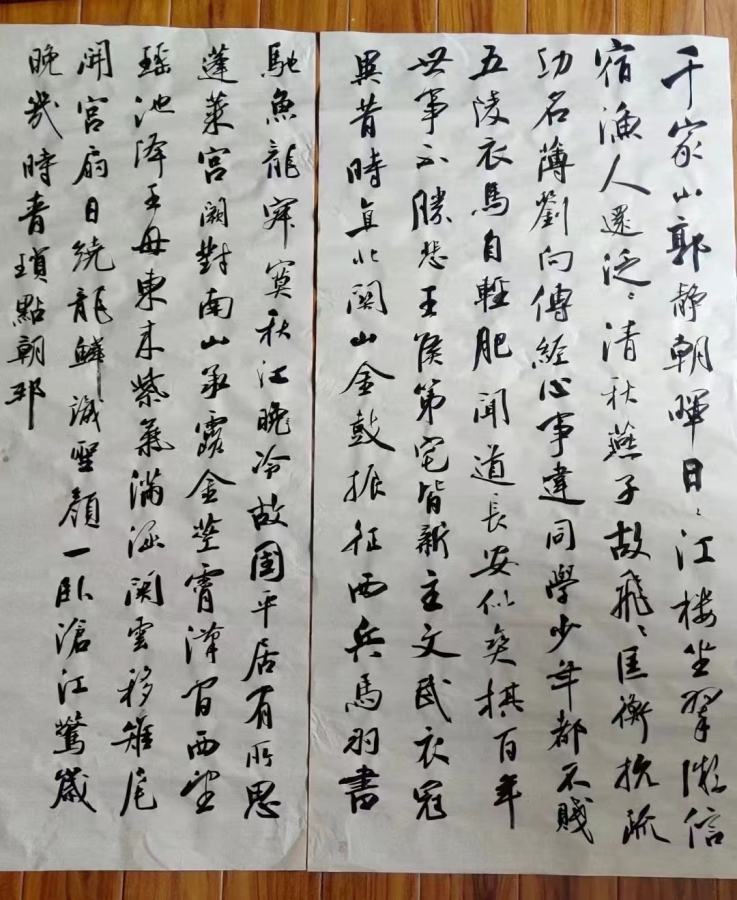 千家山郭静朝暉日〻江楼坐翠微信
宿漁人還泛〻清秋燕子故飛〻匡衡抗疏
功名薄劉向傳經心事違同學少年都不賤
五陵衣馬自輕肥聞道長安似奕棋百年
世事不勝悲王侯第宅皆新主文武衣冠
異昔時直北関山金鼓振征西兵馬羽書
馳魚龍寂寞秋江晚冷故國平居有所思
蓬萊宮闕對南山承露金莖霄漢間西望
瑶池降王母東来紫氣滿函関雲移雉尾
開宮扇日繞龍鱗識聖顏一卧滄江驚歲
晚幾時青瑣點朝班